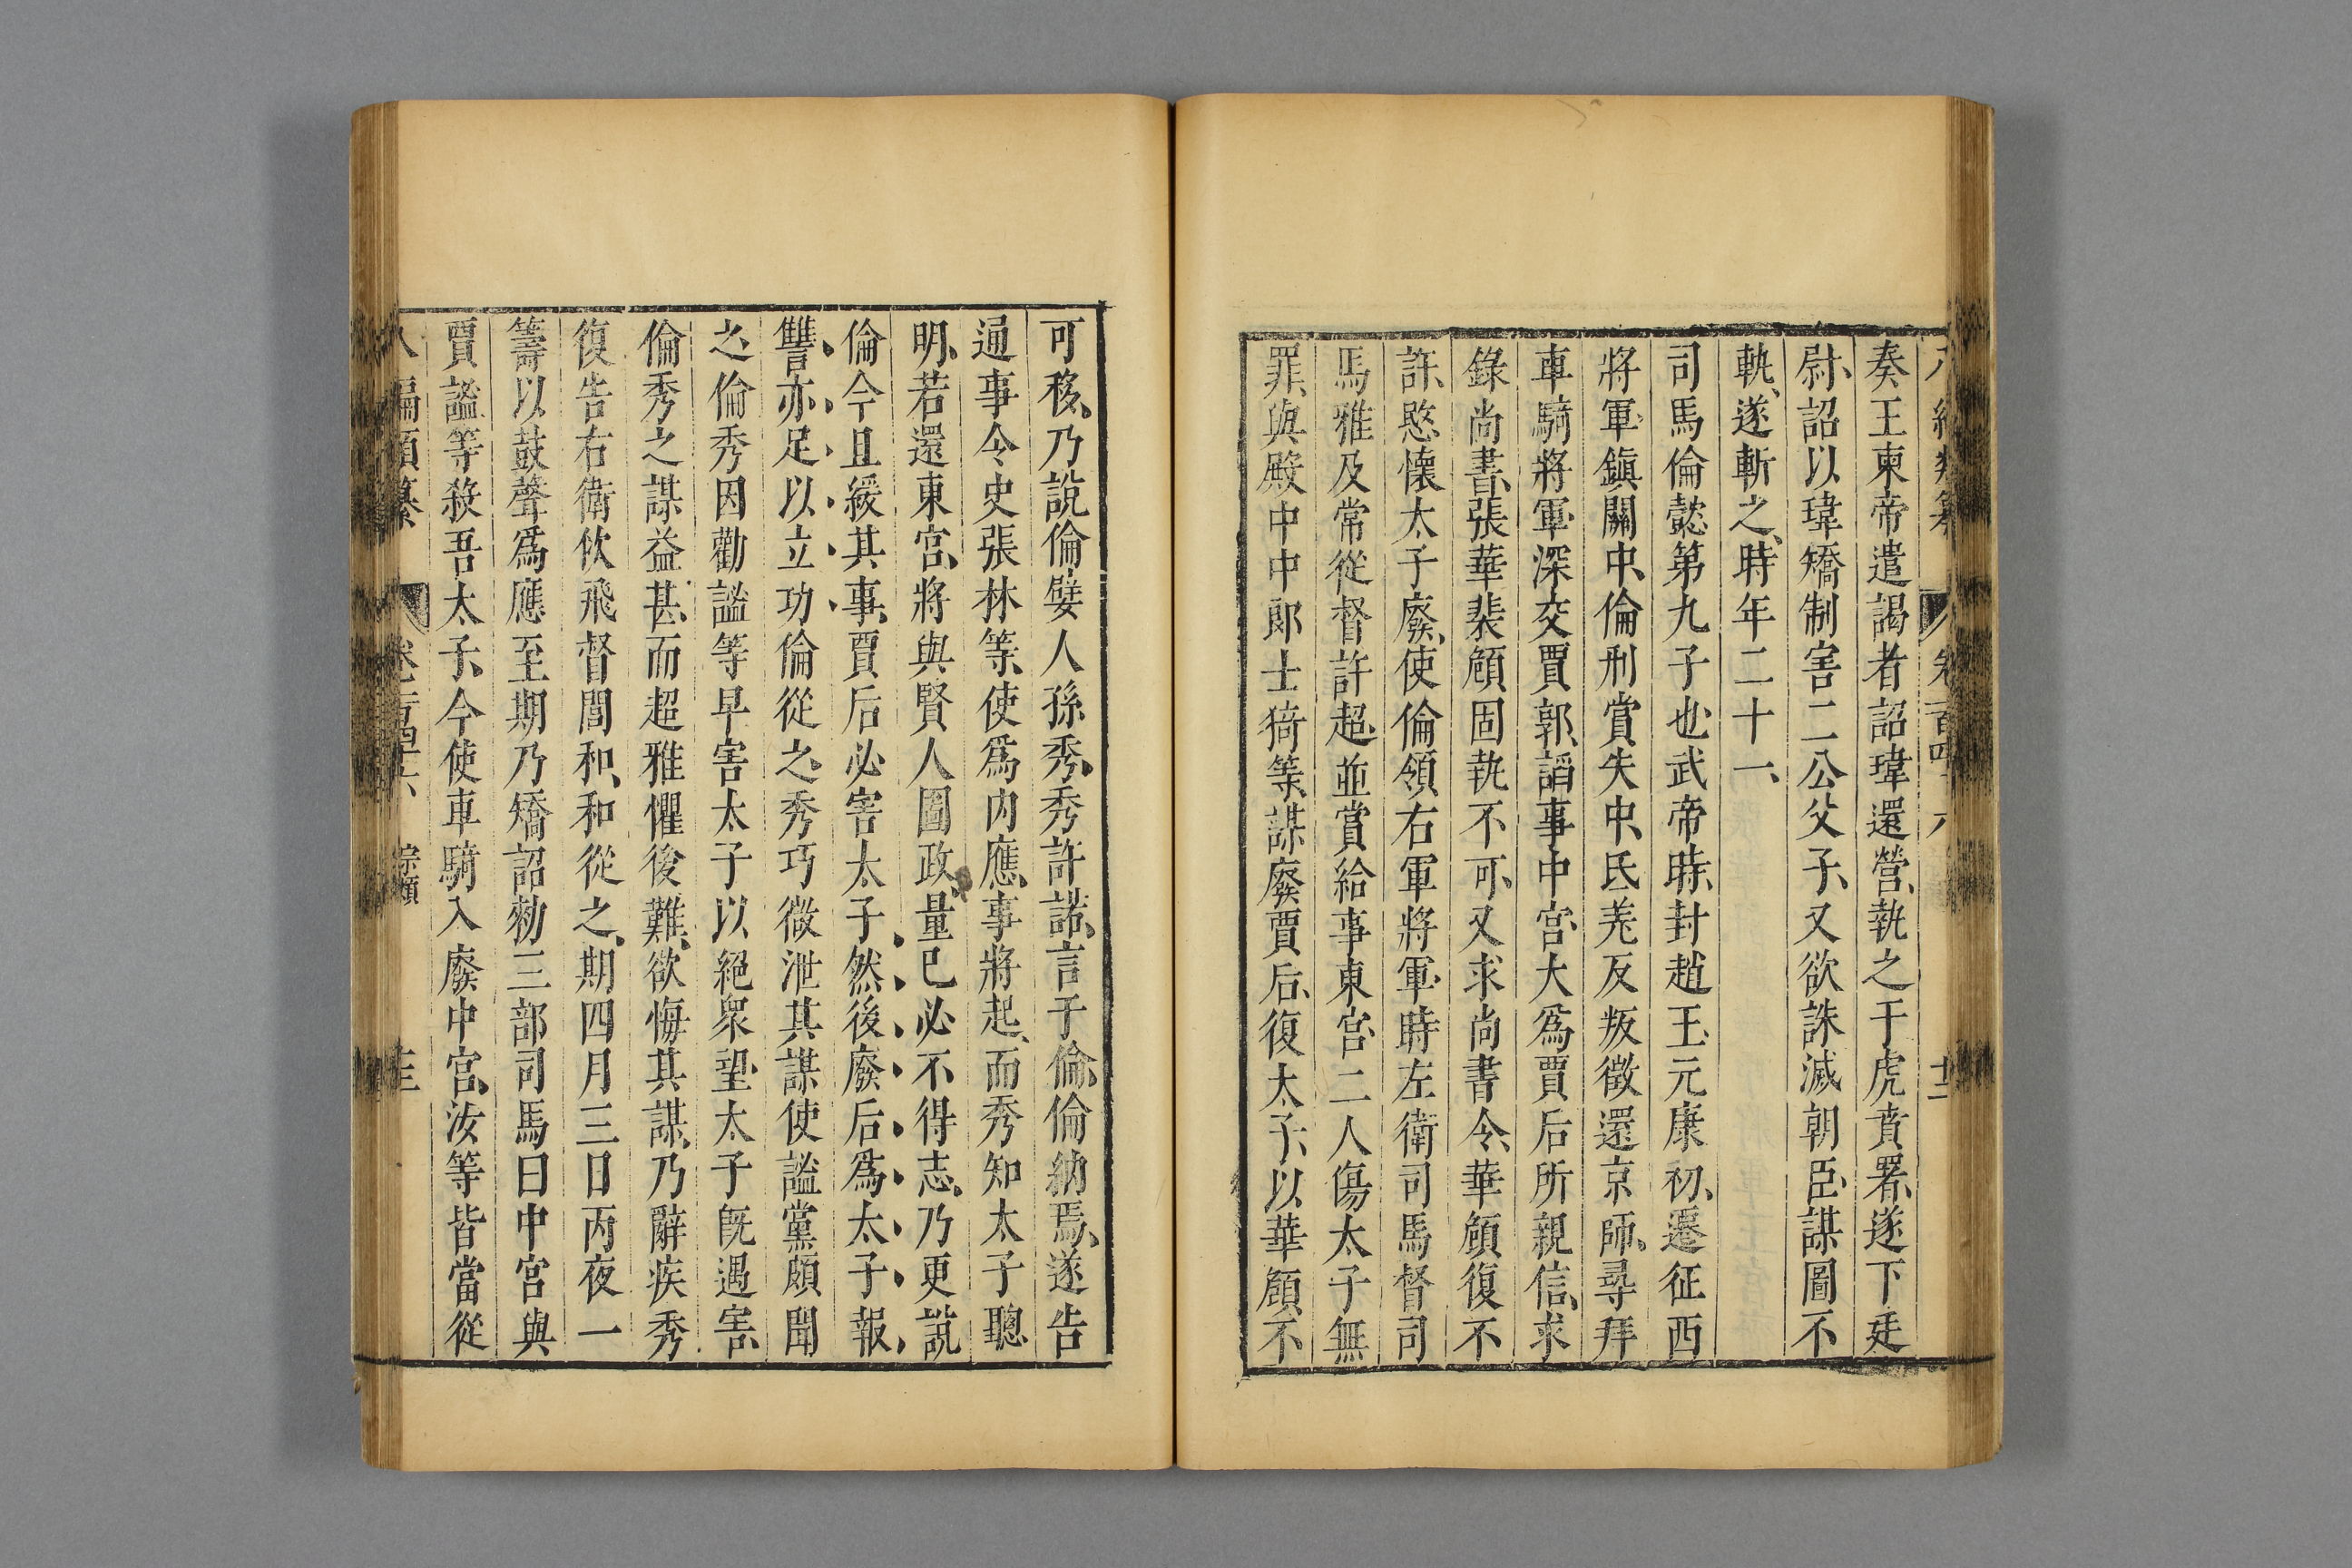 奏王東帝遣謁者詔瑋還營、執之于虎賁署、遂下廷
尉、詔以瑋矯制害二公父子、又欲誅滅朝臣、謀圖不
軌、遂斬之、時年二十一、
司馬倫懿第九子也、武帝時、封趙王、元康初、遷征西
將軍、鎮關中、倫刑賞失中、氐羌反叛徵還京師、尋拜
車騎將軍、深交賈郭、謟事中宮、大爲賈后所親信、求
錄尚書、張華裴頠固執不可、又求尚書令、華頠復不
許、愍懷太子廢、使倫領右軍將軍、時左衛司馬督司
馬雅及常從督許超、並賞給事東宮、二人傷太子無
罪、與殿中中郎士猗等、謀廢賈后、復太子、以華頠不
可移、乃說倫嬖人孫秀、秀許諾、言于倫、倫納焉、遂告
通事令史張林等、使爲內應、事將起、而秀知太子聰
明、若還東宮、將與賢人圖政、量已必不得志、乃更說
倫令且緩其事、賈后必害太子、然後廢后爲太子報
讐、亦足以立功、倫從之、秀巧微泄其謀使謐黨頗聞
之、倫秀因勸謐等早害太子以絕衆望、太子既遇害、
倫秀之謀益甚、而超雅懼後難、欲悔其謀、乃辭疾秀
復告右衛佽飛督閭和、和從之、期四月三日丙夜一
籌以鼓聲爲應至期乃矯詔勑三部司馬曰中宮與
賈謐等殺吾太子、今使車騎入廢中宮、汝等皆當從